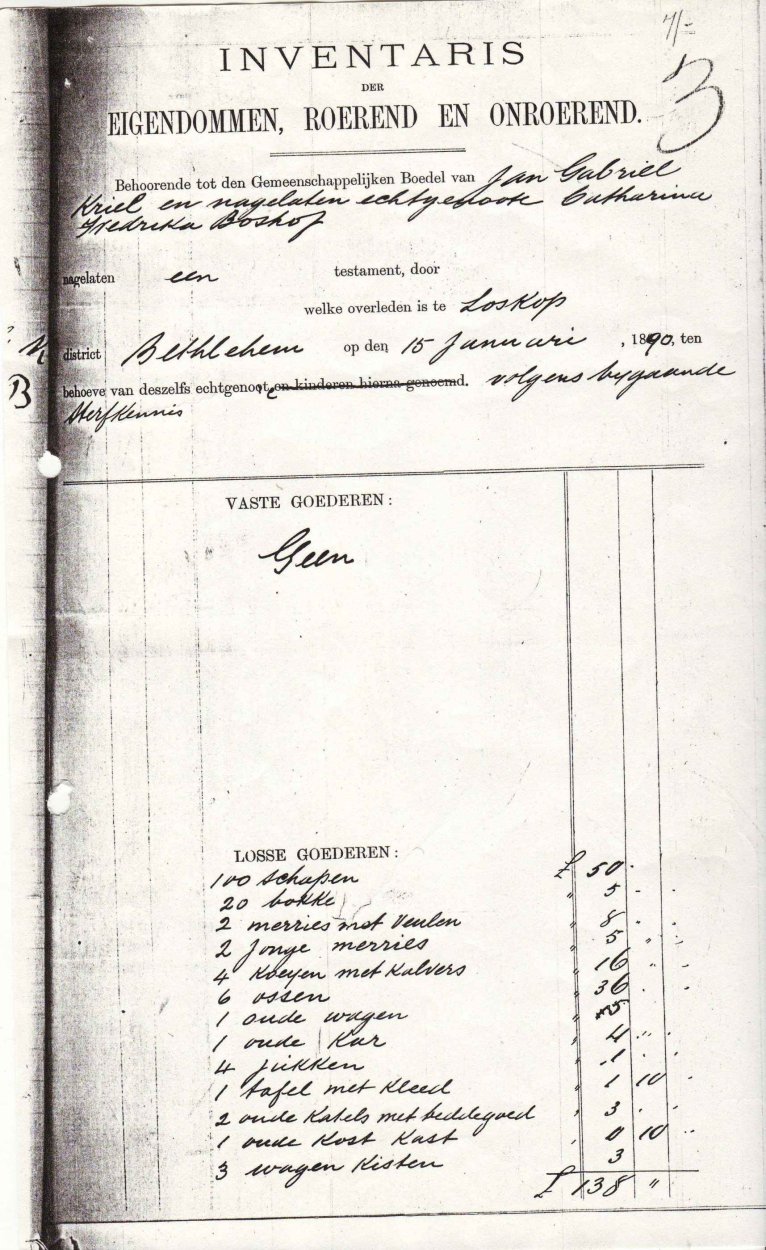 4/-
3
INVENTARIS
DER
EIGENDOMMEN, ROEREND EN ONROEREND.
Behoorende tot den Gemeenschappelijken Boedel van Jan Gabriel
Kriel en nagelaten echtgenoote Catharina
Fredrika Boshof
nagelaten een testament, door
welke overleden is te Loskop
district Bethlehem op den 15 Januari , 1890, ten
B behoeve van deszelfs echtgenoote en kinderen hierna genoemd. volgens bygaande
sterfkennis
VASTE GOEDEREN:
Geen
LOSSE GOEDEREN:
100 schapen £ 50 .
20 bokke " 5 . .
2 merries met veulen " 8 . .
2 jonge merries " 5 " .
4 koeyen met kalvers " 16 . .
6 ossen " 36 . .
1 oude wagen 5
1 oude kar " 4 " .
4 jukken " 1 . .
1 tafel met kleed " 1 10 .
2 oude katels met beddegoed " 3 . .
1 oude kost kast " 0 10 "
3 wagen kisten 3
£ 138 "